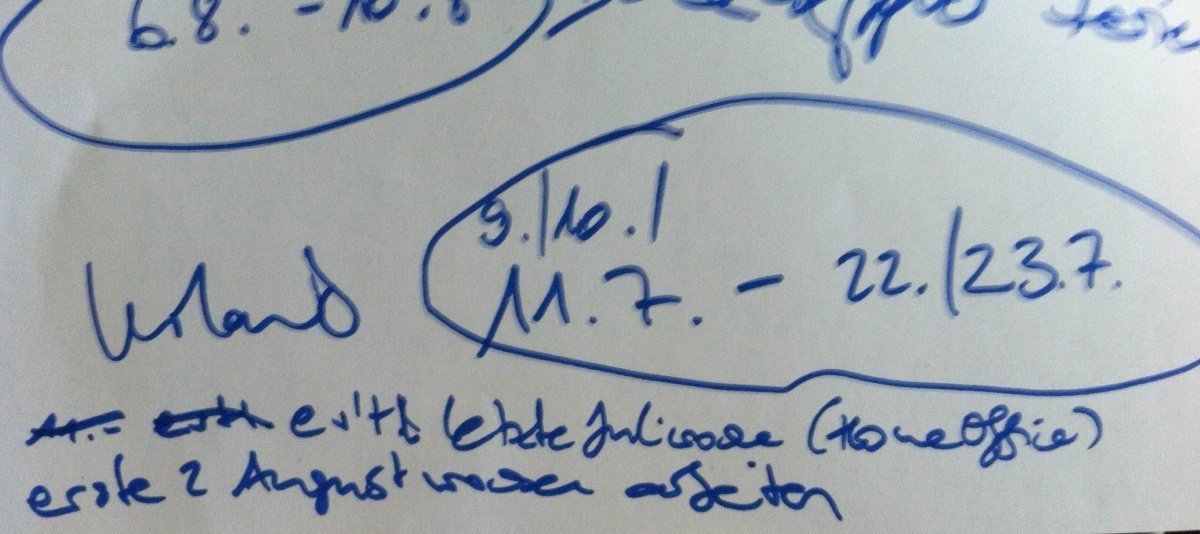 6.8. - 10.8
9./10./
Urlaub 11.7. - 22./23.7.
evtl. letzte Juliwoche (HomeOffice)
erste 2 Augustwochen arbeiten